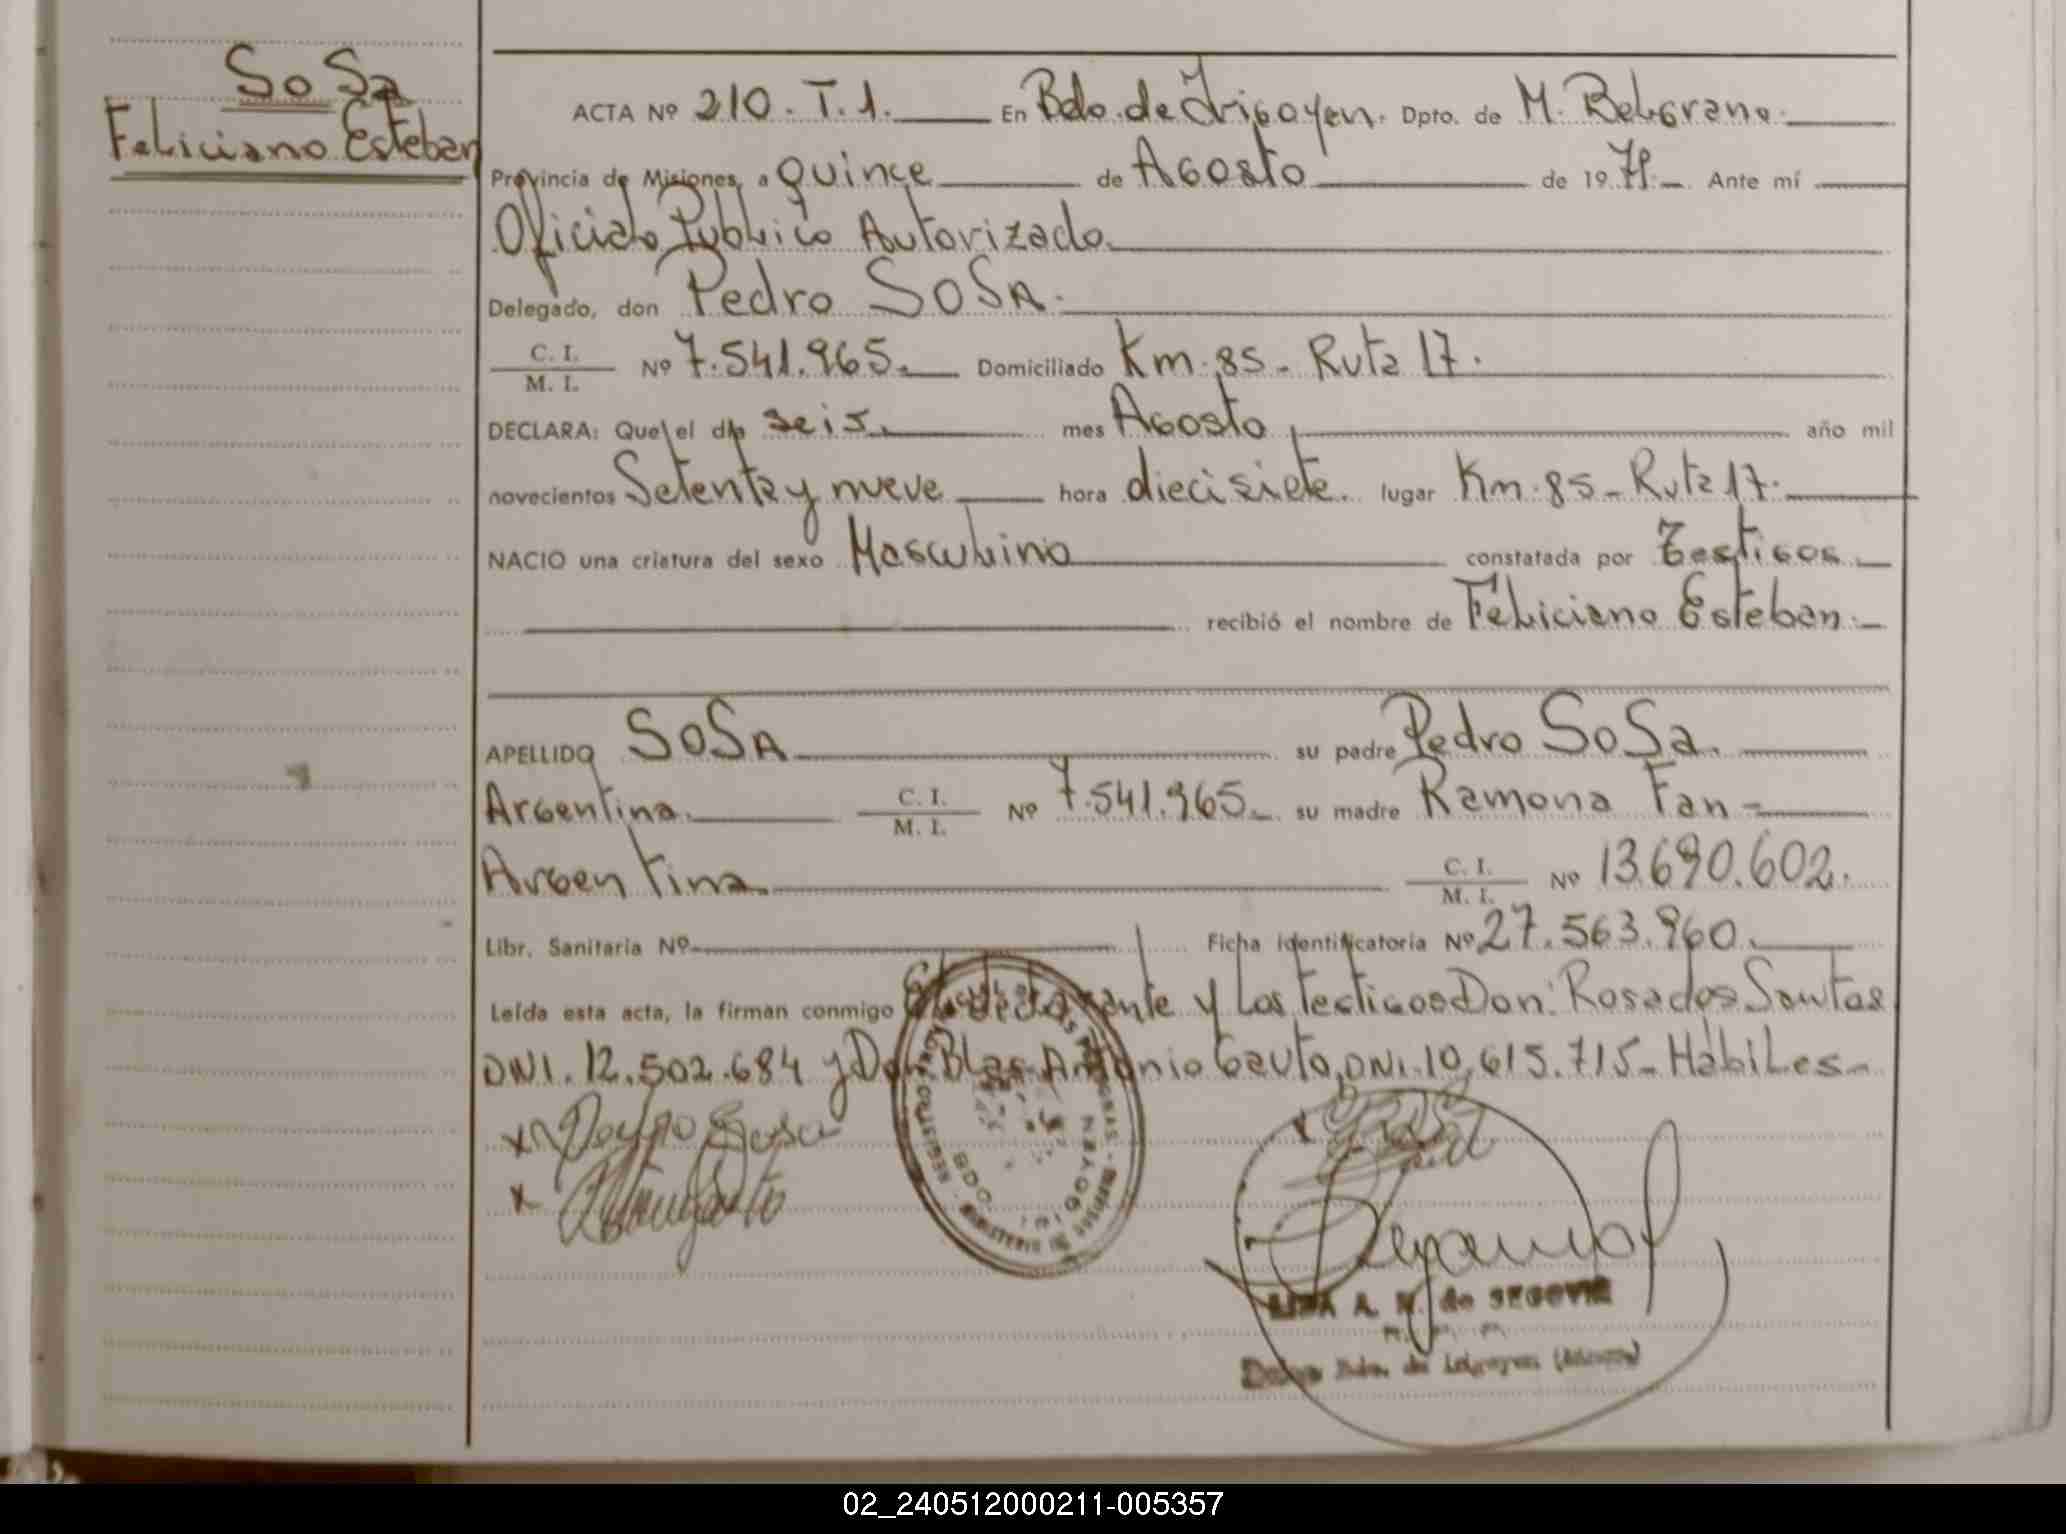 SOSA
Feliciano Esteban
ACTA Nº 210. T. 1. En Bdo. de Irigoyen. Dpto. de M. Belgrano.
Provincia de Misiones, a quince de Agosto de 19 79. Ante mí
Oficial Público Autorizado.
Delegado, don Pedro SOSA.
C. I.
M. I. Nº 7.541.965. Domiciliado Km. 85 - Ruta 17.
DECLARA: Que el día seis, mes Agosto, año mil
novecientos Setenta y nueve hora diecisiete. lugar Km. 85 - Ruta 17.
NACIO una criatura del sexo Masculino constatada por Testigos.
recibió el nombre de Feliciano Esteban.
APELLIDO SOSA su padre Pedro SOSA.
Argentina. C. I.
M. I. Nº 7.541.965. su madre Ramona Fan -
Argentina. C. I.
M. I. Nº 13.690.602.
Libr. Sanitaria Nº Ficha identificatoria Nº 27.563.960.
Leída esta acta, la firman conmigo El declarante y los testigos Don: Rosados Santos
DNI. 12.502.684 y Don Blas Antonio Gauto, DNI. 10.615.715 - Hábiles -
x Pedro Sosa
x
x
A. N. de SEGOVIA
Bdo. de Irigoyen (Misiones)
02_240512000211-005357